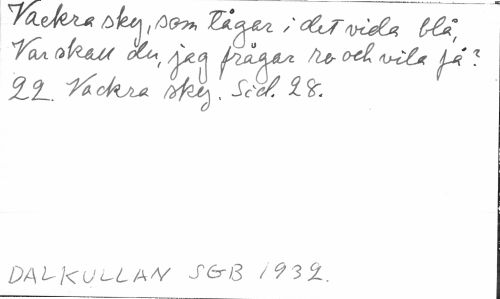 Vackra sky, som tågar i det vida blå,
Var skall du, jag frågar ro och vila få?
22. Vackra sky. Sid. 28.
DALKULLAN SGB 1932.